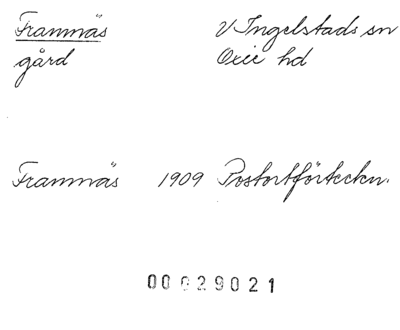 Framnäs V Ingelstads sn
gård Oxie hd
Framnäs 1909 Postortförteckn.
00029021